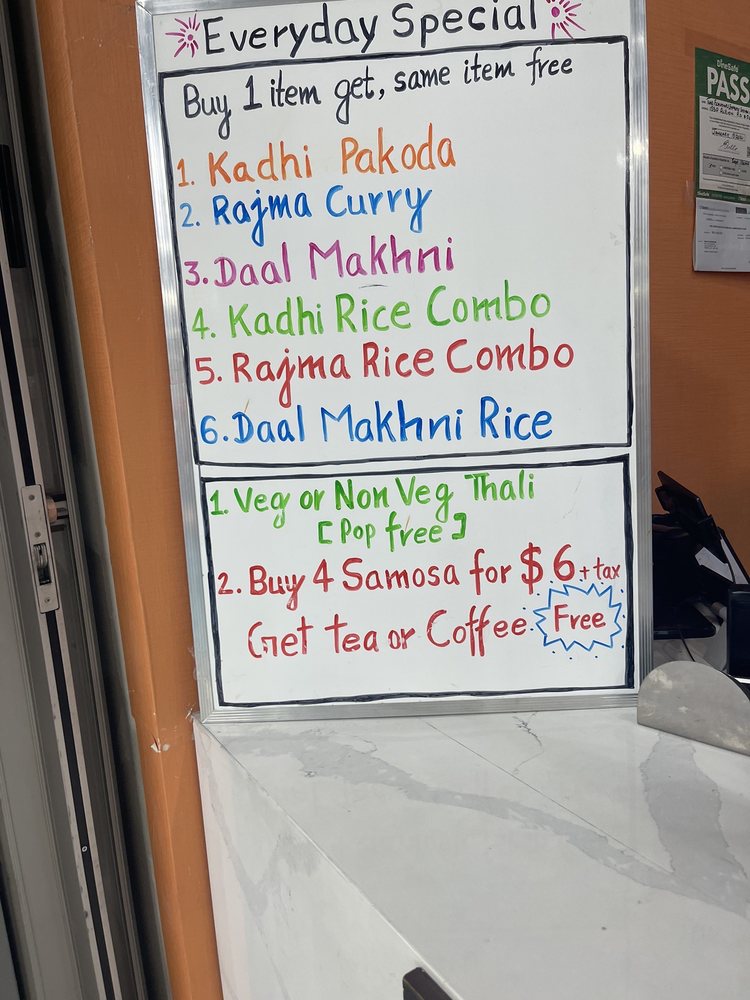 Everyday Special
Buy 1 item get, same item free
1. Kadhi Pakoda
2. Rajma Curry
3. Daal Makhni
4. Kadhi Rice Combo
5. Rajma Rice Combo
6. Daal Makhni Rice
1. Veg or Non Veg Thali
[Pop free]
2. Buy 4 Samosa for $6 + tax
Get tea or Coffee Free
DineSafe
PASS